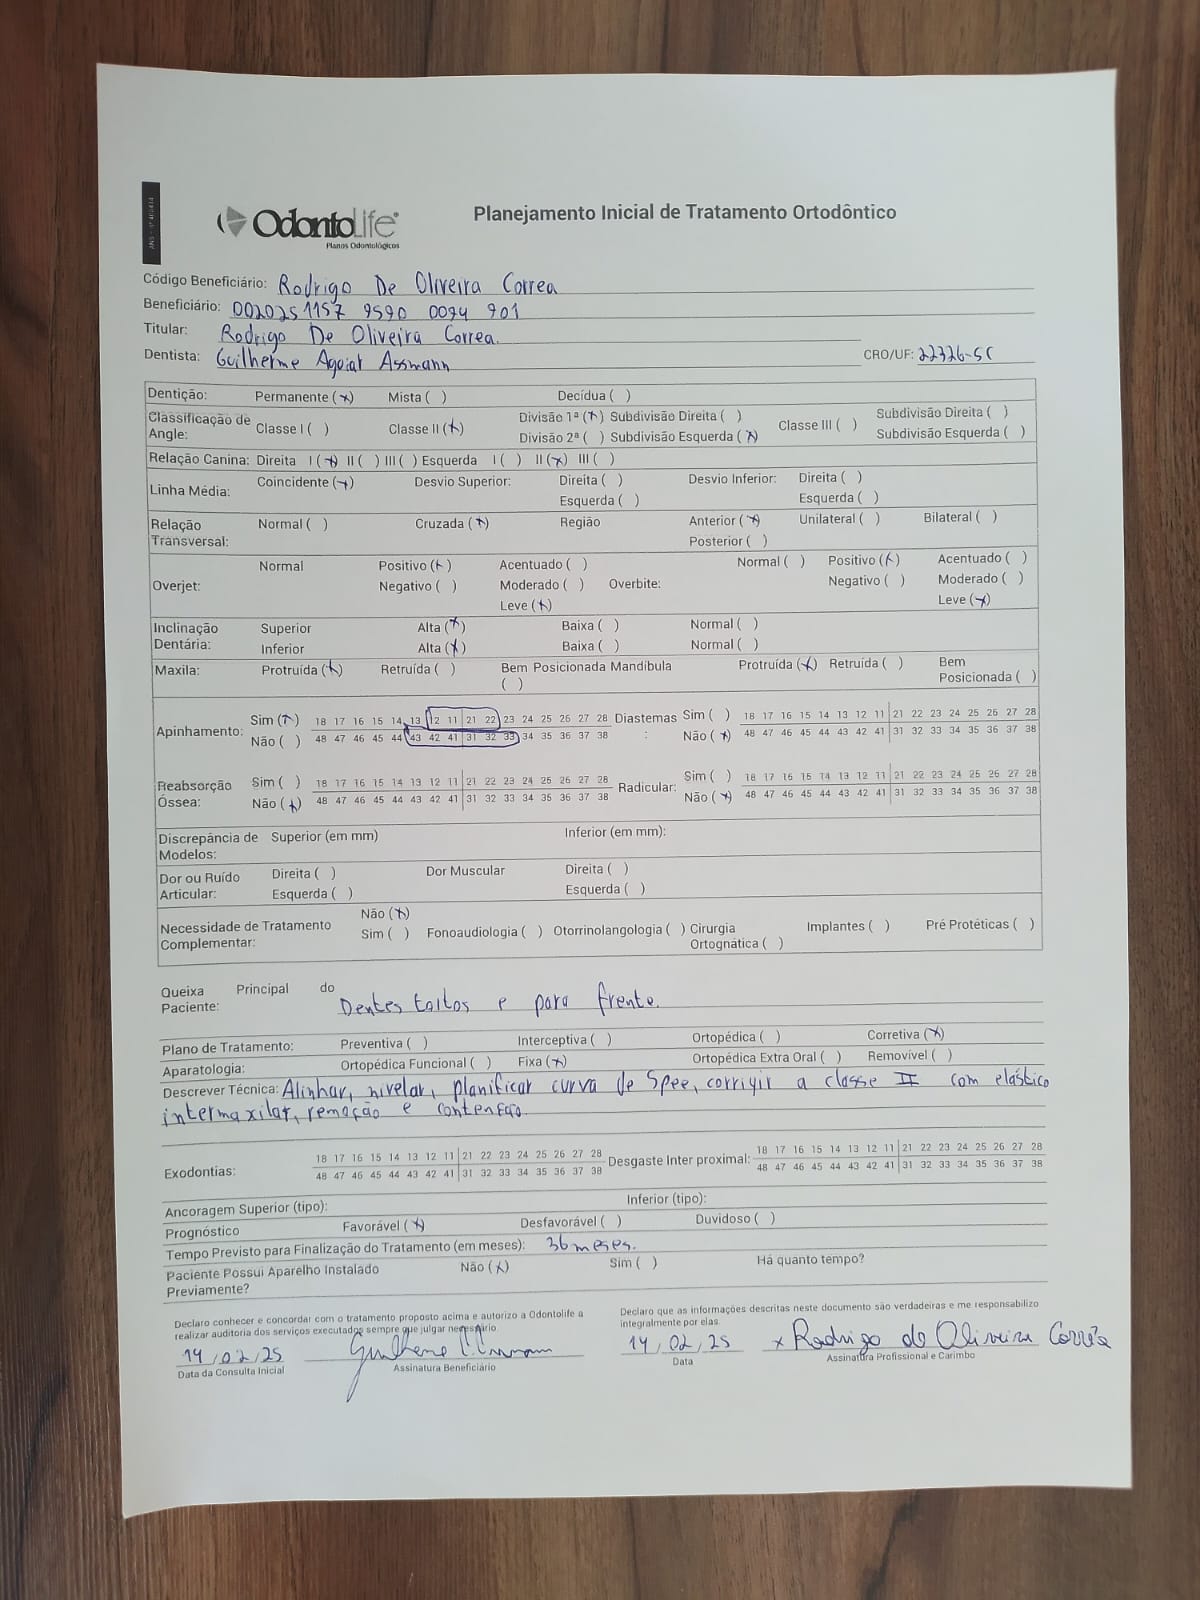 OdontoLife
Planos Odontológicos
Planejamento Inicial de Tratamento Ortodôntico
Código Beneficiário: Rodrigo De Oliveira Correa
Beneficiário: 0020251157 9590 0094 901
Titular: Rodrigo De Oliveira Correa.
Dentista: Guilherme Agoiat Assmann CRO/UF: 22326-SC
Dentição: Permanente (x) Mista ( ) Decídua ( )
Classificação de Angle: Classe I ( ) Classe II (x) Divisão 1ª (x) Subdivisão Direita ( ) Classe III ( ) Subdivisão Direita ( )
Divisão 2ª ( ) Subdivisão Esquerda (x) Subdivisão Esquerda ( )
Relação Canina: Direita I (x) II ( ) III ( ) Esquerda I ( ) II (x) III ( )
Linha Média: Coincidente (x) Desvio Superior: Direita ( ) Desvio Inferior: Direita ( )
Esquerda ( ) Esquerda ( )
Relação Transversal: Normal ( ) Cruzada (x) Região Anterior (x) Unilateral ( ) Bilateral ( )
Posterior ( )
Overjet: Normal Positivo (x) Acentuado ( ) Overbite: Normal ( ) Positivo (x) Acentuado ( )
Negativo ( ) Moderado ( ) Negativo ( ) Moderado ( )
Leve (x) Leve (x)
Inclinação Dentária: Superior Alta (x) Baixa ( ) Normal ( )
Inferior Alta (x) Baixa ( ) Normal ( )
Maxila: Protruída (x) Retruída ( ) Bem Posicionada ( ) Mandíbula Protruída (x) Retruída ( ) Bem Posicionada ( )
Apinhamento: Sim (x) 18 17 16 15 14 13 12 11 21 22 23 24 25 26 27 28 Diastemas: Sim ( ) 18 17 16 15 14 13 12 11 21 22 23 24 25 26 27 28
Não ( ) 48 47 46 45 44 43 42 41 31 32 33 34 35 36 37 38 Não (x) 48 47 46 45 44 43 42 41 31 32 33 34 35 36 37 38
Reabsorção Óssea: Sim ( ) 18 17 16 15 14 13 12 11 21 22 23 24 25 26 27 28 Radicular: Sim ( ) 18 17 16 15 14 13 12 11 21 22 23 24 25 26 27 28
Não (x) 48 47 46 45 44 43 42 41 31 32 33 34 35 36 37 38 Não (x) 48 47 46 45 44 43 42 41 31 32 33 34 35 36 37 38
Discrepância de Modelos: Superior (em mm) Inferior (em mm):
Dor ou Ruído Articular: Direita ( ) Dor Muscular Direita ( )
Esquerda ( ) Esquerda ( )
Necessidade de Tratamento Complementar: Não (x)
Sim ( ) Fonoaudiologia ( ) Otorrinolangologia ( ) Cirurgia Ortognática ( ) Implantes ( ) Pré Protéticas ( )
Queixa Principal do Paciente: Dentes tortos e para frente.
Plano de Tratamento: Preventiva ( ) Interceptiva ( ) Ortopédica ( ) Corretiva (x)
Aparatologia: Ortopédica Funcional ( ) Fixa (x) Ortopédica Extra Oral ( ) Removível ( )
Descrever Técnica: Alinhar, nivelar, planificar curva de Spee, corrigir a classe II com elástico
intermaxilar, remoção e contenção.
Exodontias: 18 17 16 15 14 13 12 11 21 22 23 24 25 26 27 28 Desgaste Inter proximal: 18 17 16 15 14 13 12 11 21 22 23 24 25 26 27 28
48 47 46 45 44 43 42 41 31 32 33 34 35 36 37 38 48 47 46 45 44 43 42 41 31 32 33 34 35 36 37 38
Ancoragem Superior (tipo): Inferior (tipo):
Prognóstico Favorável (x) Desfavorável ( ) Duvidoso ( )
Tempo Previsto para Finalização do Tratamento (em meses): 36 meses.
Paciente Possui Aparelho Instalado Previamente? Não (x) Sim ( ) Há quanto tempo?
Declaro conhecer e concordar com o tratamento proposto acima e autorizo a Odontolife a
realizar auditoria dos serviços executados sempre que julgar necessário
Declaro que as informações descritas neste documento são verdadeiras e me responsabilizo
integralmente por elas.
14/02/25 14/02/25 x Rodrigo de Oliveira Corrêa
Data da Consulta Inicial Assinatura Beneficiário Data Assinatura Profissional e Carimbo